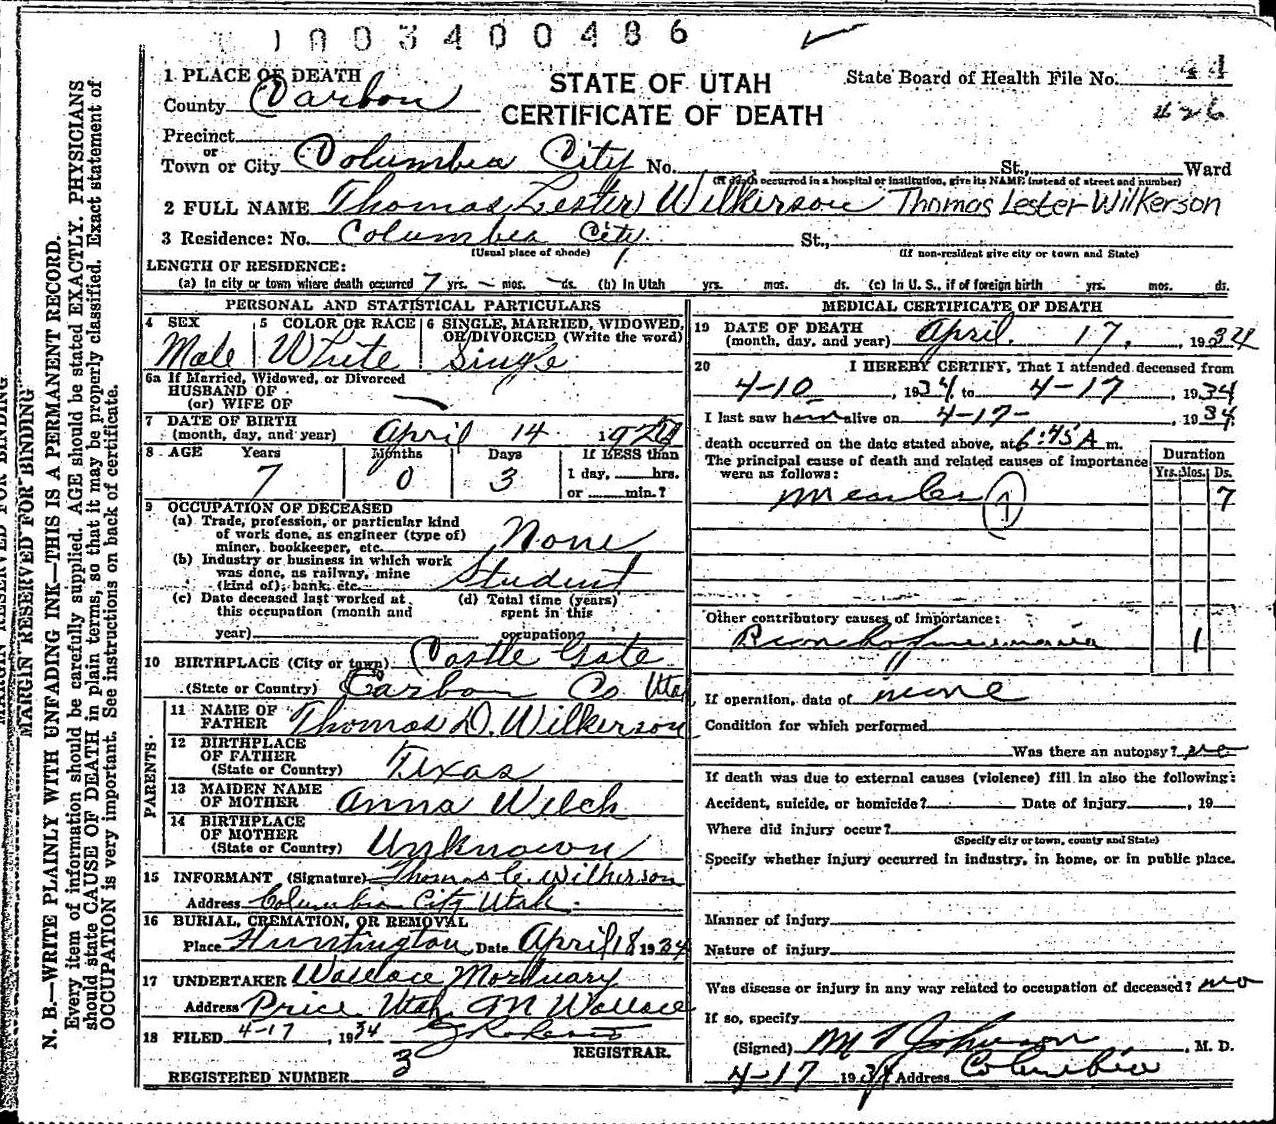 1003400486
1 PLACE OF DEATH
County Carbon
STATE OF UTAH
CERTIFICATE OF DEATH
State Board of Health File No. 44
426
Precinct
or
Town or City Columbia City No. St., Ward
(If death occurred in a hospital or institution, give its NAME instead of street and number)
2 FULL NAME Thomas Lester Wilkerson Thomas Lester Wilkerson
3 Residence: No. Columbia City St.,
(Usual place of abode) (If non-resident give city or town and State)
LENGTH OF RESIDENCE:
(a) In city or town where death occurred 7 yrs. – mos. – ds. (b) In Utah yrs. mos. ds. (c) In U. S., if of foreign birth yrs. mos. ds.
PERSONAL AND STATISTICAL PARTICULARS
4 SEX Male
5 COLOR OR RACE White
6 SINGLE, MARRIED, WIDOWED, OR DIVORCED (Write the word) Single
6a If Married, Widowed, or Divorced
HUSBAND OF
(or) WIFE OF
7 DATE OF BIRTH
(month, day, and year) April 14 192
8 AGE Years Months Days If LESS than
7 0 3 1 day, hrs.
or min.?
9 OCCUPATION OF DECEASED
(a) Trade, profession, or particular kind
of work done, as engineer (type of)
miner, bookkeeper, etc. None
(b) Industry or business in which work
was done, as railway, mine
(kind of), bank, etc. Student
(c) Date deceased last worked at
this occupation (month and
year)
(d) Total time (years)
spent in this
occupation
10 BIRTHPLACE (City or town) Castle Gate
(State or Country) Carbon Co Utah
PARENTS
11 NAME OF
FATHER Thomas D. Wilkerson
12 BIRTHPLACE
OF FATHER
(State or Country) Texas
13 MAIDEN NAME
OF MOTHER Anna Welch
14 BIRTHPLACE
OF MOTHER
(State or Country) Unknown
15 INFORMANT (Signature) Thomas C. Wilkerson
Address Columbia City Utah.
16 BURIAL, CREMATION, OR REMOVAL
Place Huntington Date April 18 1934
17 UNDERTAKER Wallace Mortuary
Address Price Utah M Wallace
18 FILED 4-17, 1934
REGISTRAR.
REGISTERED NUMBER 3
MEDICAL CERTIFICATE OF DEATH
19 DATE OF DEATH
(month, day, and year) April. 17, 1934
20 I HEREBY CERTIFY, That I attended deceased from
4-10, 1934 to 4-17, 1934
I last saw him alive on 4-17-, 1934
death occurred on the date stated above, at 6:45 A m.
The principal cause of death and related causes of importance
were as follows:
Duration
Yrs. Mos. Ds.
Measles (1) 7
Other contributory causes of importance:
Bronchopneumonia 1
If operation, date of none
Condition for which performed
Was there an autopsy? no
If death was due to external causes (violence) fill in also the following:
Accident, suicide, or homicide? Date of injury , 19
Where did injury occur?
(Specify city or town, county and State)
Specify whether injury occurred in industry, in home, or in public place.
Manner of injury
Nature of injury
Was disease or injury in any way related to occupation of deceased? no
If so, specify
(Signed) Johnson, M. D.
4-17 1934 Address Columbia
MARGIN RESERVED FOR BINDING
N. B.—WRITE PLAINLY WITH UNFADING INK—THIS IS A PERMANENT RECORD.
Every item of information should be carefully supplied. AGE should be stated EXACTLY. PHYSICIANS
should state CAUSE OF DEATH in plain terms, so that it may be properly classified. Exact statement of
OCCUPATION is very important. See instructions on back of certificate.